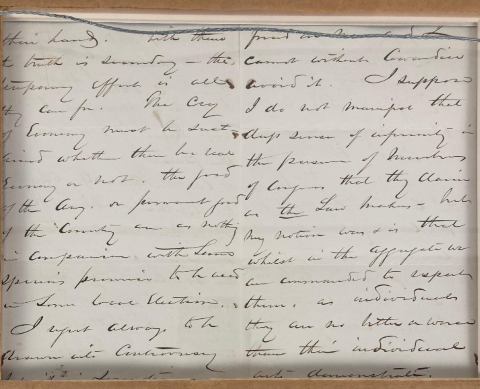 their hands. With them
the truth is secondary - the
temporary effect is all
they care for. The Cry
of Economy must be sust-
ained whether there be real
Economy or not. the good
of the Army. or permanent good
of the Country are as nothing
in comparison with Some
specious promise to be used
in Some local Election.
I regret always to be
drawn into Controversy
cannot without Cowardice
avoid it. I suppose
I do not manifest that
deep sense of inferiority in
the presence of Members
of Congress that they claim
as the Law makers - but
My notion was & is that
whilst in the aggregate we
are commanded to respect
them, as individuals
they are no better or worse
than their individual
acts demonstrate